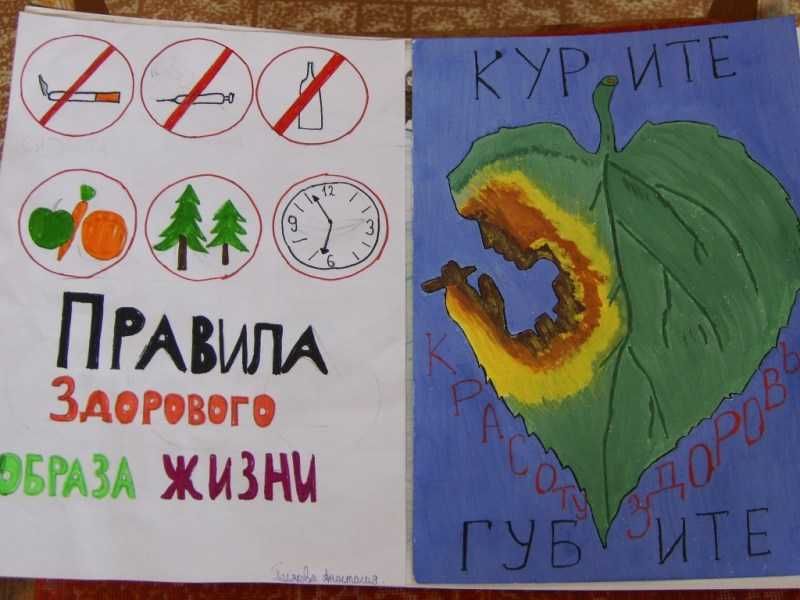 12
3
6
9
ПРАВИЛА
ЗДОРОВОГО
ОБРАЗА ЖИЗНИ
Анастасия.
КУРИТЕ
КРАСОТУ
ЗДОРОВЬ
ГУБИТЕ